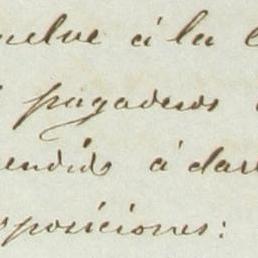 uelve á la
pagaderos
endido á dar
sposiciones: